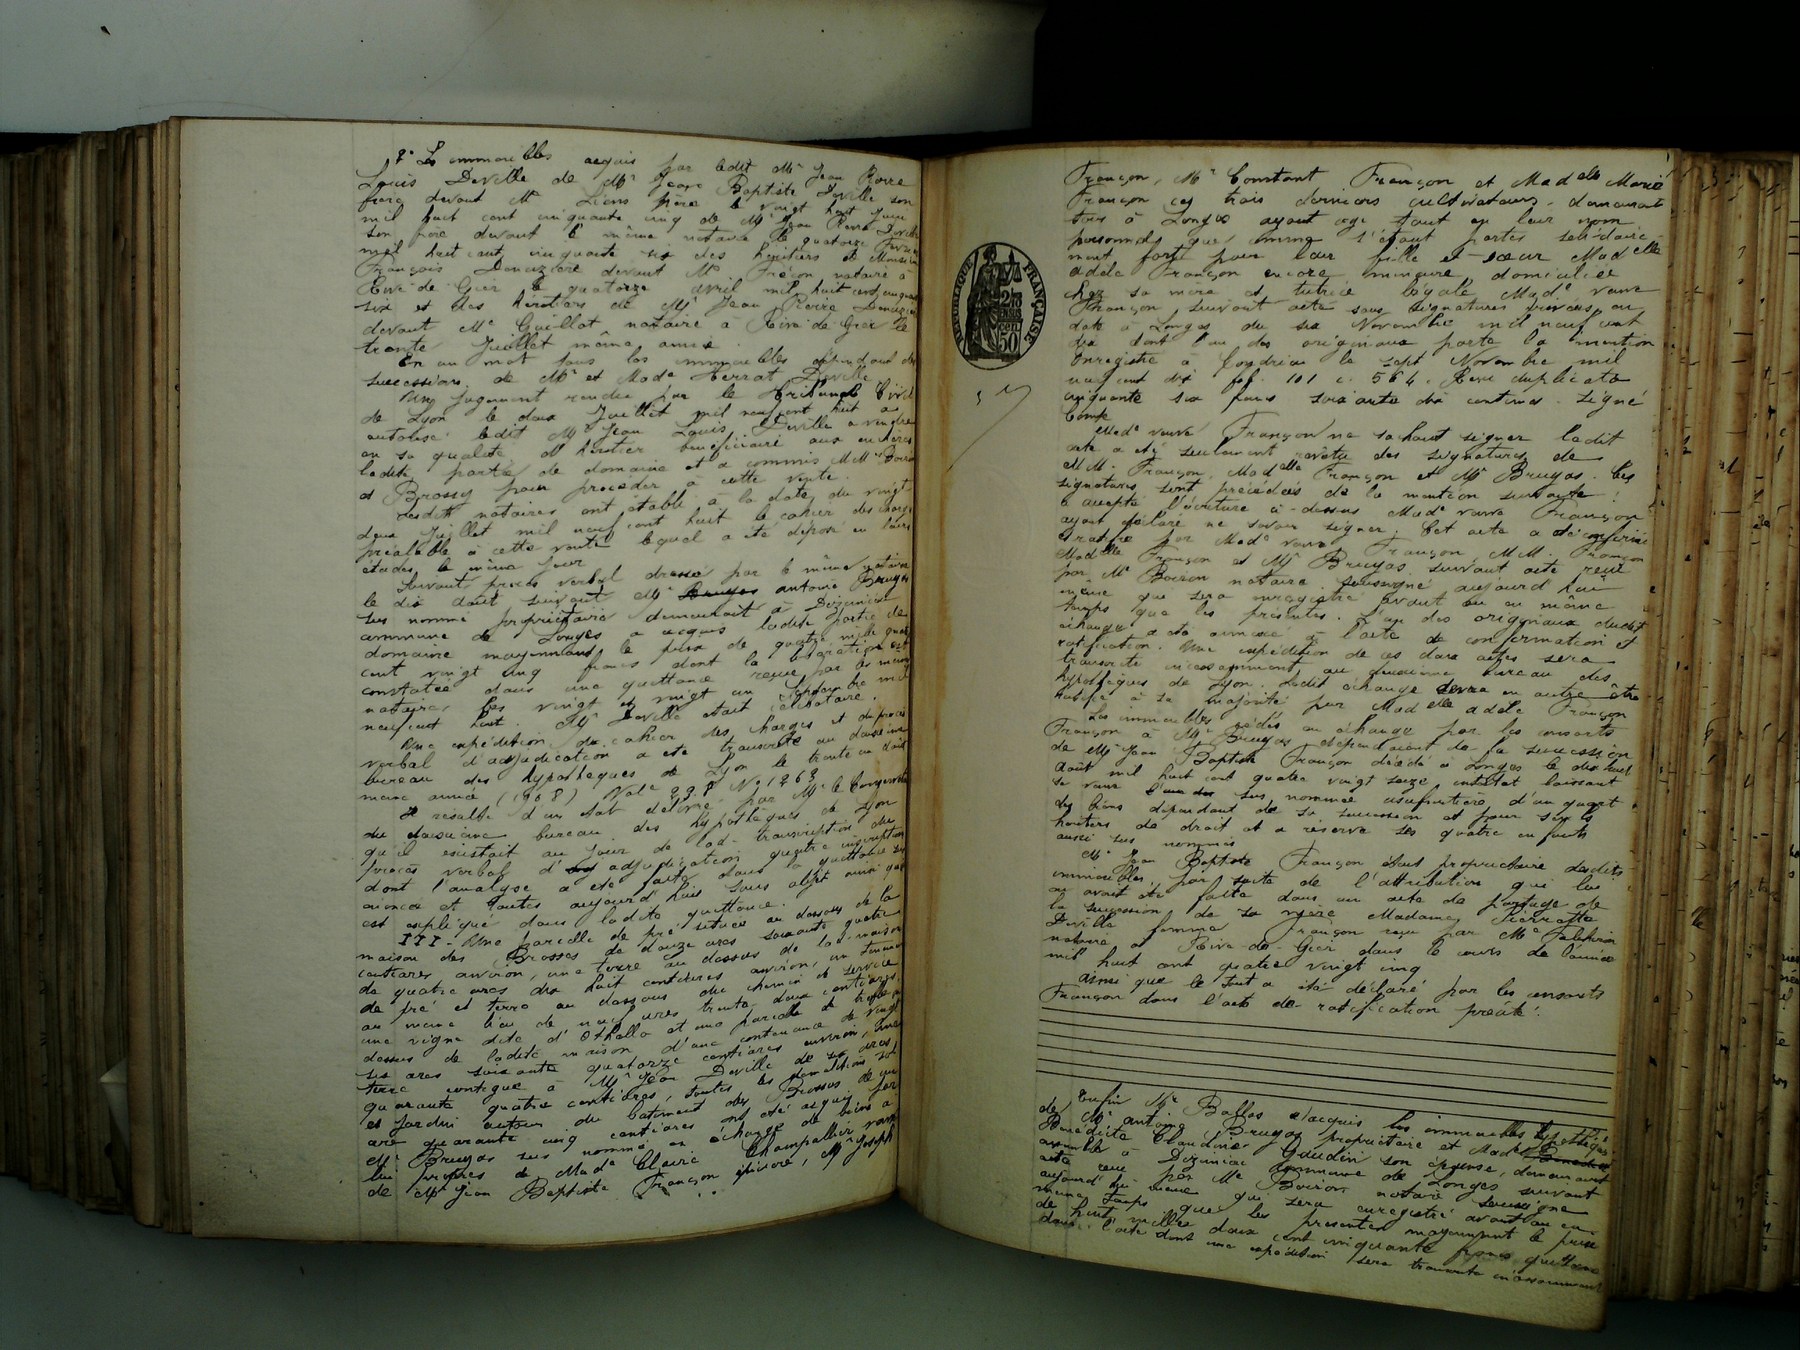 2° Les immeubles acquis par ledit Mr Jean Pierre
Louis Deville de Mr Jean Baptiste Deville son
frère devant Me Liens père le vingt huit Juin
mil huit cent cinquante cinq de Mr Jean Pierre Deville
son père devant le même notaire le quatorze
mil huit cent cinquante six des héritiers de Monsieur
François Donzière devant Me Frécon notaire à
Rive de Gier le quatorze avril mil huit cent cinquante
six et des héritiers de Mr Jean Pierre
devant Me Guillot notaire à Rive-de-Gier le
trente Juillet même année
En un mot tous les immeubles dépendant des
successions de Mr et Made Herrat Deville
Un Jugement rendu par le Tribunal Civil
de Lyon le deux Juillet mil neuf cent huit a
autorisé ledit Mr Jean Louis Deville a vendre
en sa qualité d'héritier bénéficiaire aux enchères
ladite partie de domaine et a commis MMes Boiron
et Brossy pour procéder à cette vente.
Lesdits notaires ont établi à la date du vingt
deux Juillet mil neuf cent huit le cahier des charges
préalable à cette vente lequel a été déposé en leurs
études le même jour
Suivant procès verbal dressé par le même notaire
le dix août suivant Mr Bruyas antoine Bruyas
sus nommé propriétaire demeurant à Dizimieux
commune de Longes a acquis ladite partie de
domaine moyennant le prix de quatre mille quatre
cent vingt cinq francs dont la libération est
constatée dans une quittance reçue par les mêmes
notaires les vingt et vingt un Septembre mil
neuf cent huit. Mr Deville était célibataire.
Une expédition du cahier des charges et du procès
verbal d'adjudication a été transcrite au deuxième
bureau des hypothèques de Lyon le trente un août
même année (1908) Vole 298 No 1263
Il résulte d'un état délivré par Mr le Conservateur
du deuxième bureau des hypothèques de Lyon
qu'il existait au jour de lad. transcription du
procès verbal d' adjudication quatre inscriptions
dont l'analyse a été faite dans la quittance sus
énoncée et toutes aujourd'hui sans objet ainsi qu'il
est expliqué dans ladite quittance.
III - Une parcelle de pré située au dessous de la
maison des Brosses de douze ares soixante quatre
centiares environ, une terre au dessus de lad. maison
de quatre ares dix huit centiares environ, un tènement
de pré et terre au dessous du chemin de service
au même lieu de neuf ares trente deux centiares,
une vigne dite d'Othello et une parcelle de
dessus de ladite maison d'une contenance de vingt
six ares soixante quatorze centiares environ, une
terre contigue à Mr Jean Deville de six ares
quarante quatre centiares, toutes les
et jardin autour du bâtiment des Brosses de un
are quarante cinq centiares ont été acquis par
Mr Bruyas sus nommé en échange de biens à
lui propres de Made Claire Champallier veuve
de Mr Jean Baptiste Françon épicière, Mr Joseph
Françon, Mr Constant Françon et Madelle Marie
Françon ces trois derniers cultivateurs, demeurant
tous à Longes ayant agi tant en leur nom
personnel que comme s'étant portés solidaire-
ment fort pour leur fille et sœur Madelle
Adèle Françon encore mineure, domiciliée
chez sa mère et tutrice légale Made veuve
Françon, suivant acte sous signatures privées en
date à Longes du six Novembre mil neuf cent
dix dont l'un des originaux porte la mention
Enregistré à Condrieu le sept Novembre mil
neuf cent dix fol. 101 c. 564. Reçu duplicata
cinquante six francs soixante dix centimes. Signé
Comte
Made veuve Françon ne sachant signer ledit
acte a été seulement revêtu des signatures de
MM. Françon, Madelle Françon et Mr Bruyas. Ces
signatures sont précédées de la mention suivante :
a accepté l'écriture ci-dessus Made veuve Françon
ayant déclaré ne savoir signer. Cet acte a été confirmé
et ratifié par Made veuve Françon, MM. Françon
Madelle Françon et Mr Bruyas, suivant acte reçu
par Me Boiron notaire soussigné aujourd'hui
même qui sera enregistré avant ou en même
temps que les présentes. L'un des originaux dudit
échange a été annexé à l'acte de confirmation et
ratification. Une expédition de ces deux actes sera
transcrite incessamment au deuxième bureau des
hypothèques de Lyon. Ledit échange devra en outre être
ratifié à sa majorité par Madelle Adèle Françon
Les immeubles cédés en échange par les consorts
Françon à Mr Bruyas dépendaient de la succession
de Mr Jean Baptiste Françon décédé à Longes le dix huit
août mil huit cent quatre vingt seize, intestat laissant
sa veuve sus nommée usufruitière d'un quart
des biens dépendant de sa succession et pour seuls
héritiers de droit et à réserve ses quatre enfants
aussi sus nommés
Mr Jean Baptiste Françon était propriétaire desdits
immeubles par suite de l'attribution qui lui
en avait été faite dans un acte de partage de
la succession de sa mère Madame Pierrette
Deville femme Françon reçu par Me
notaire à Rive-de-Gier dans le cours de l'année
mil huit cent quatre vingt cinq
Ainsi que le tout a été déclaré par les consorts
Françon dans l'acte de ratification précité.
Enfin Mr Ballas a acquis les immeubles hypothéqués
de Mr Antoine Bruyas propriétaire et Made
Bénédicte Claudine Gaudin son épouse, demeurant
ensemble à Dizimieu commune de Longes suivant
acte reçu par Me Boiron notaire soussigné
aujourd'hui même qui sera enregistré avant ou en
même temps que les présentes moyennant le prix
de huit mille deux cent cinquante francs quittancé
dans l'acte dont une expédition sera transcrite incessamment
RÉPUBLIQUE FRANÇAISE
2/10
EN SUS
50